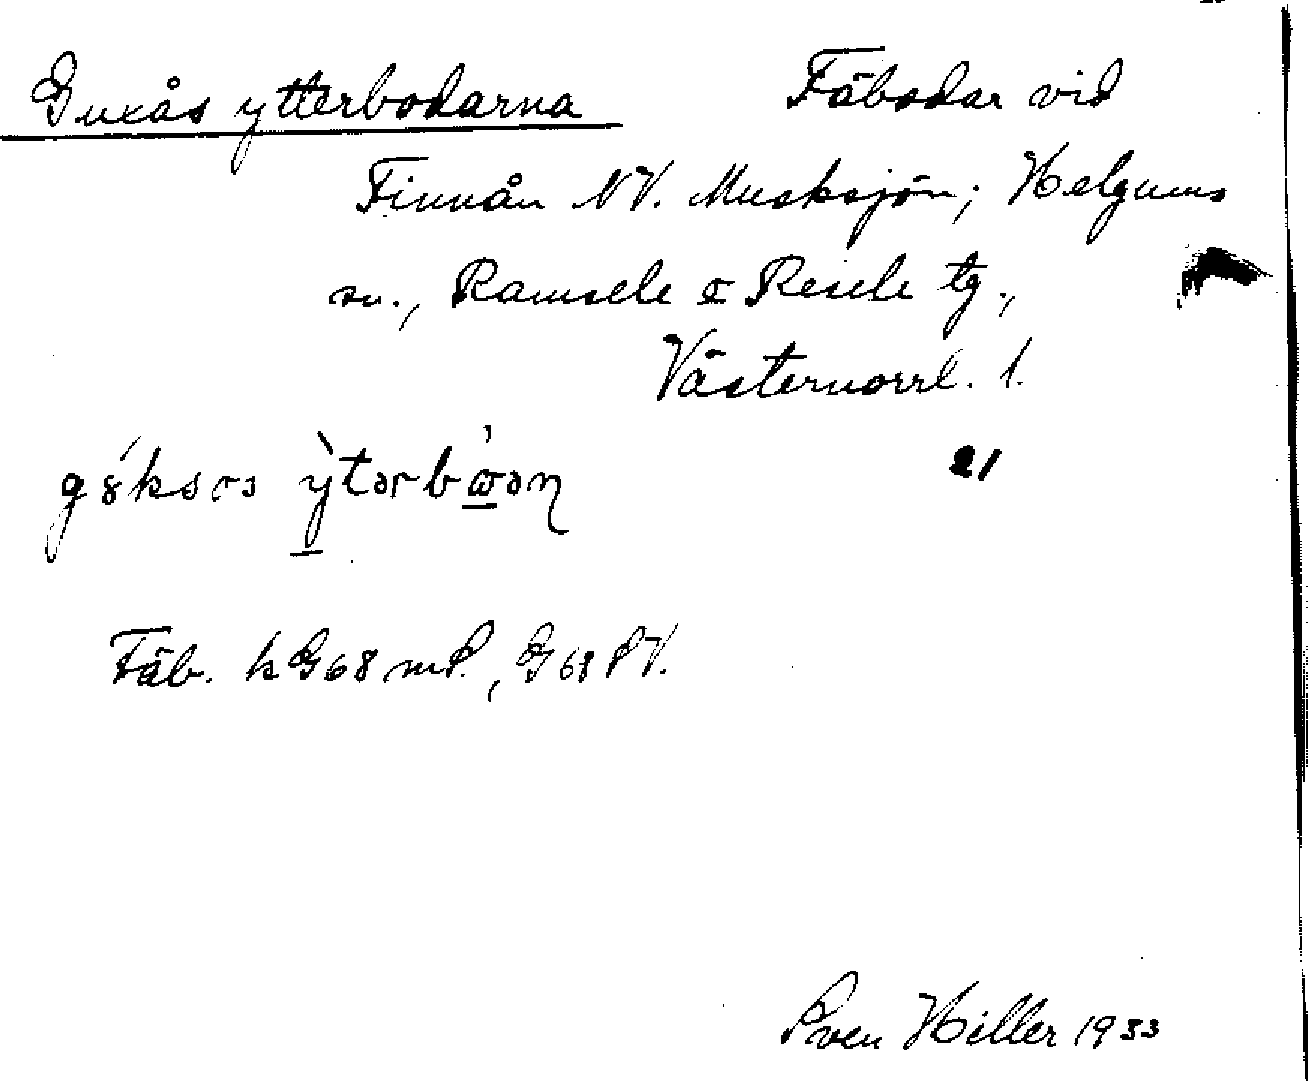 Guxås ytterbodarna Fäbodar vid
Finnån NV. Musksjön; Helgums
sn., Ramsele o Resele tg.,
Västernorrl. l.
21
Fäb. k G68 mS., G68 SV.
Sven Hiller 1933